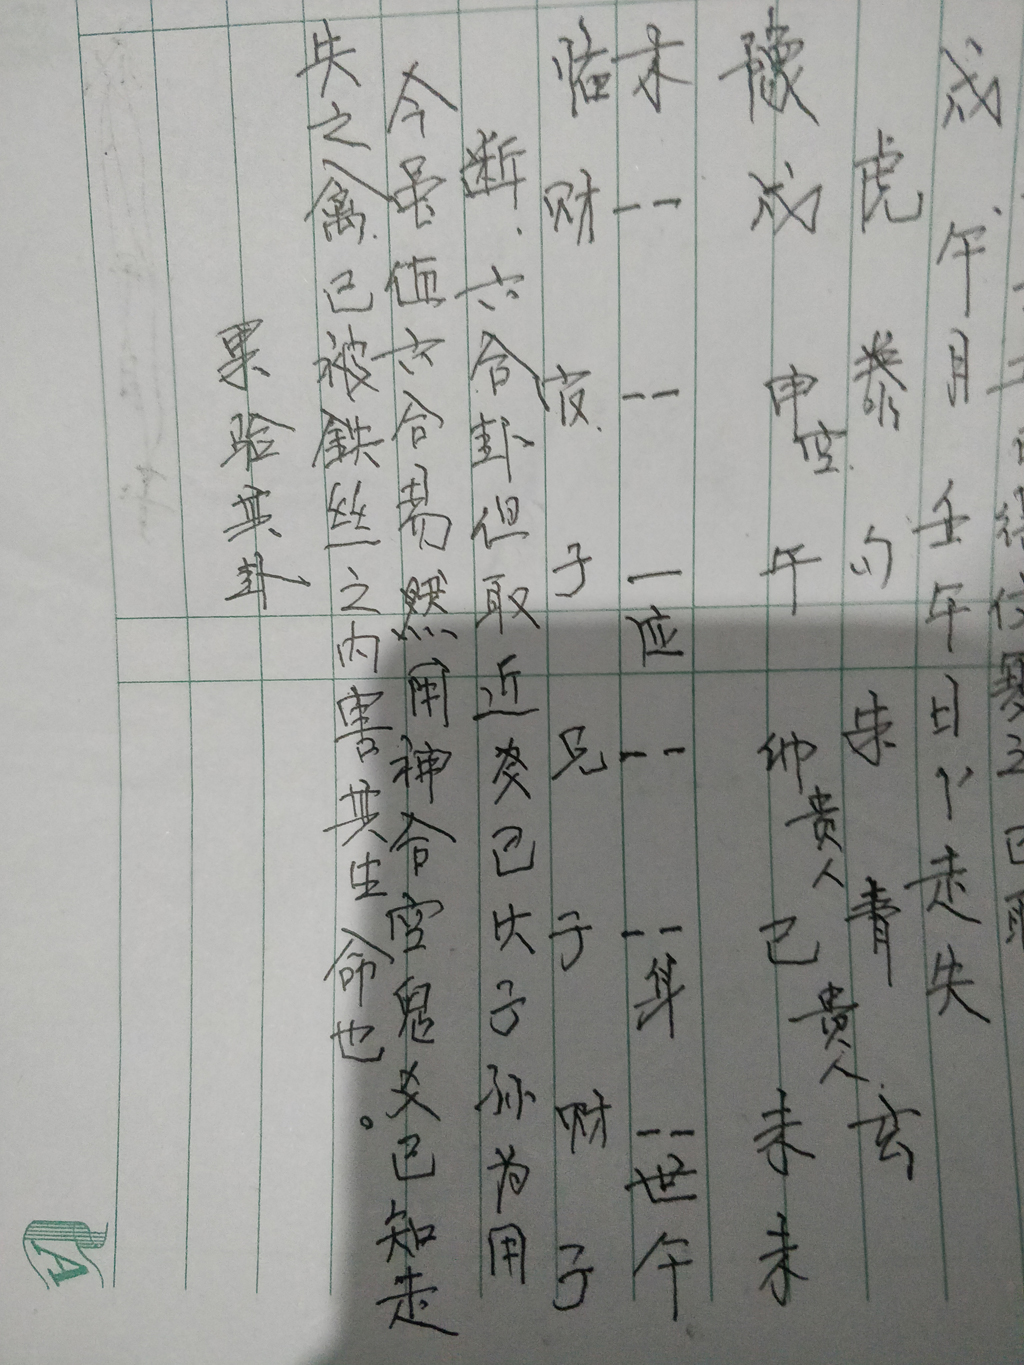 戌午月壬午日卜走失
虎 泰 勾 朱 青 玄
豫 戌 申空 午 卯貴人 巳貴人 未 未
木 -- -- 一应 -- --身 --世 午
临 财 官 子 兄 子 财 子
断、六合卦但取近爻巳火子孙为用
今虽值六合易然用神合空鬼爻已知走
失之禽已被鉄丝之内害其生命也。
果验其卦
A